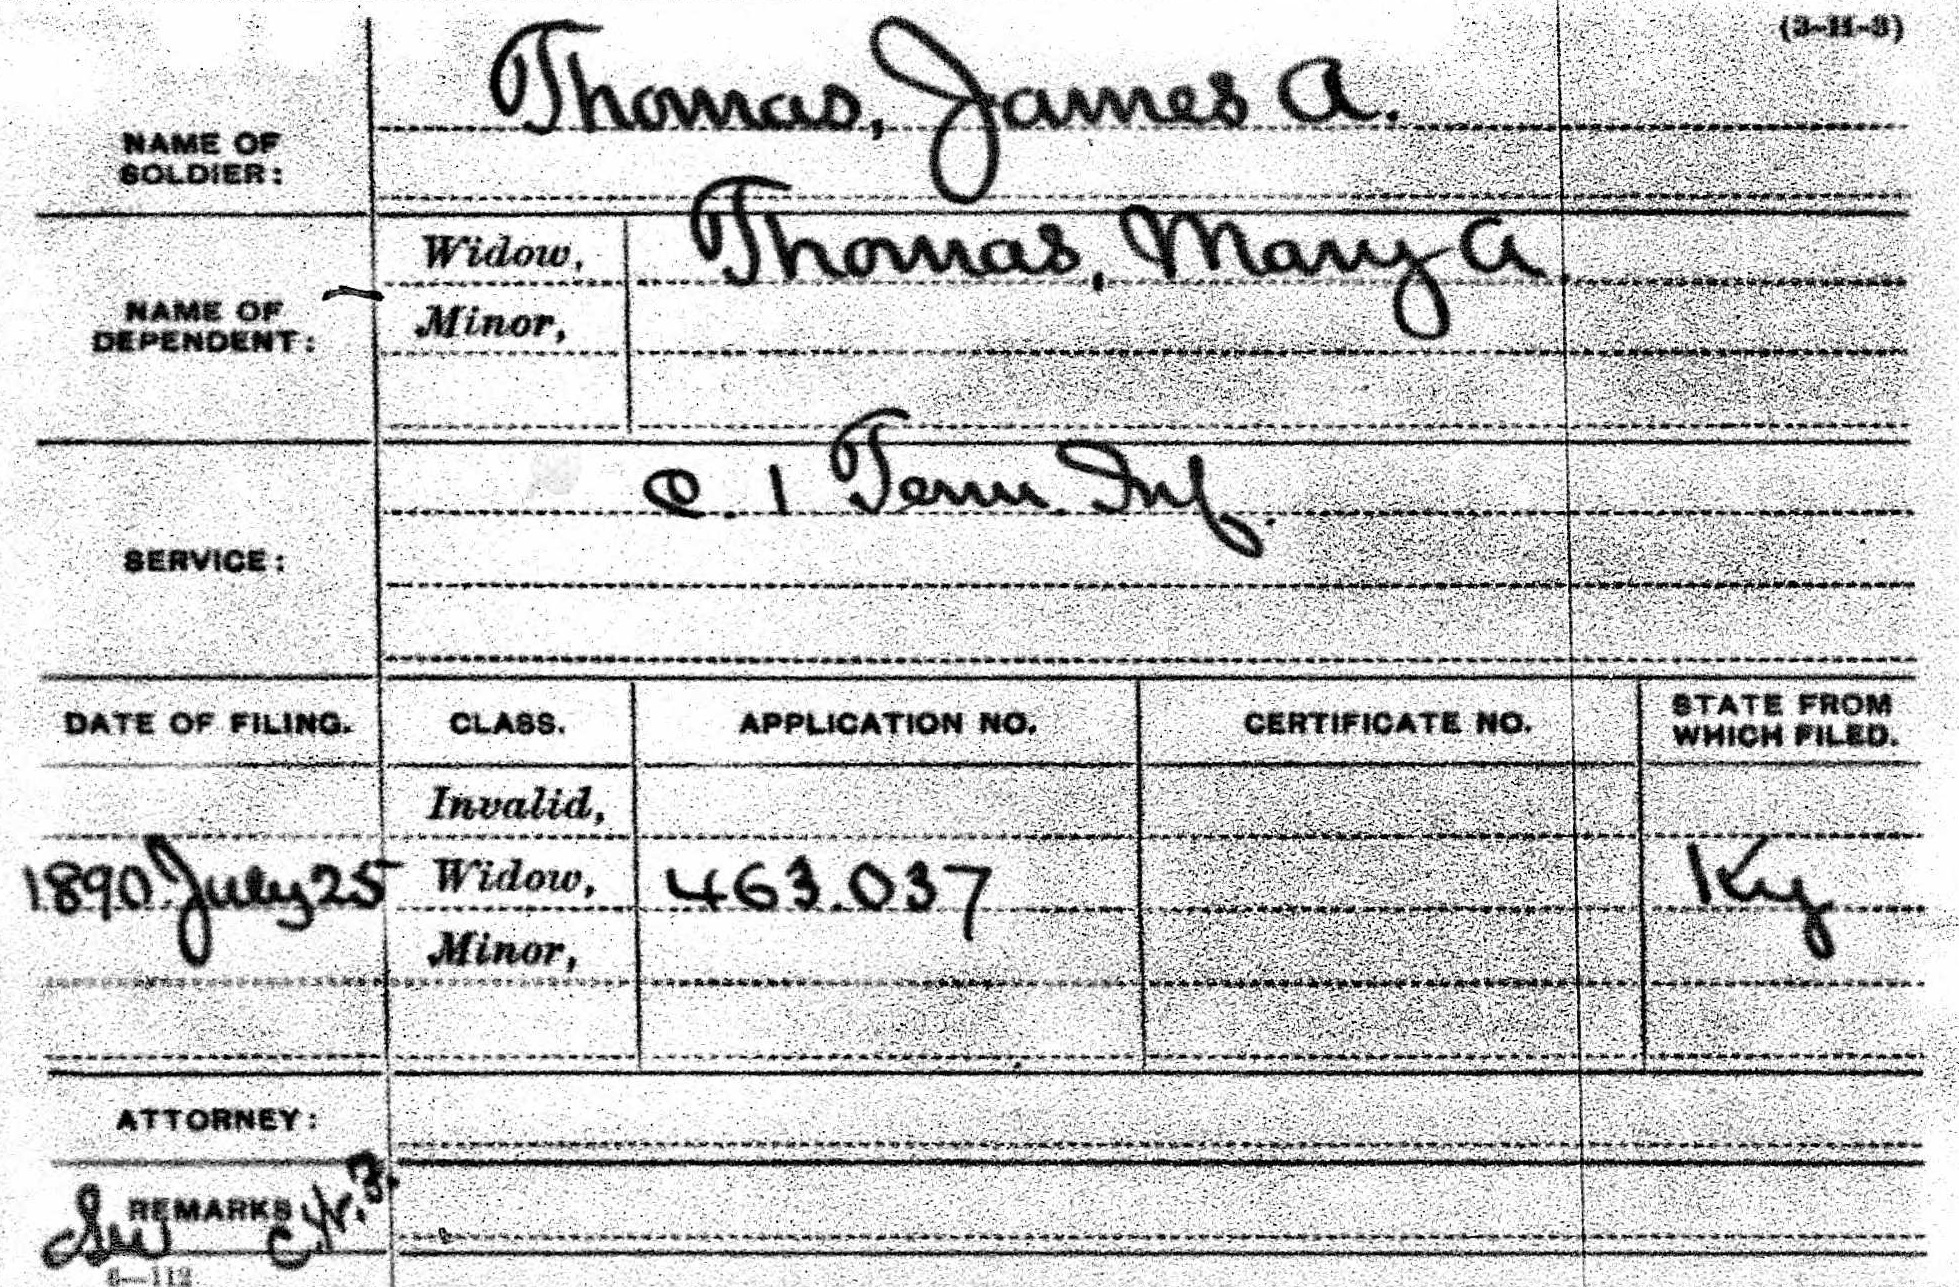 (3-H-3)
Thomas, James A.
NAME OF
SOLDIER:
Widow, Thomas, Mary A.
NAME OF
DEPENDENT:
Minor,
C. 1 Tenn. Inf.
SERVICE:
DATE OF FILING. CLASS. APPLICATION NO. CERTIFICATE NO. STATE FROM
WHICH FILED.
Invalid,
1890. July 25 Widow, 463.037 Ky
Minor,
ATTORNEY:
REMARKS
6—112